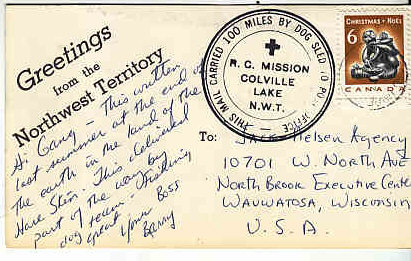 Greetings
from the
Northwest Territory
Hi Gang - This written
last summer at the end of
the earth in the land of the
Hare Skin. This delivered
part of the way by
dog team - Freaking
great
Your Boss
Barry
THIS MAIL CARRIED 100 MILES BY DOG SLED TO POST OFFICE
R. C. MISSION
COLVILLE
LAKE
N.W.T.
CHRISTMAS • NOËL
6
CANADA
To: Nelsen Agency
10701 W. NORTH AVE
NORTH BROOK EXECUTIVE CENTE
WAUWATOSA, WISCONSIN
U.S.A.